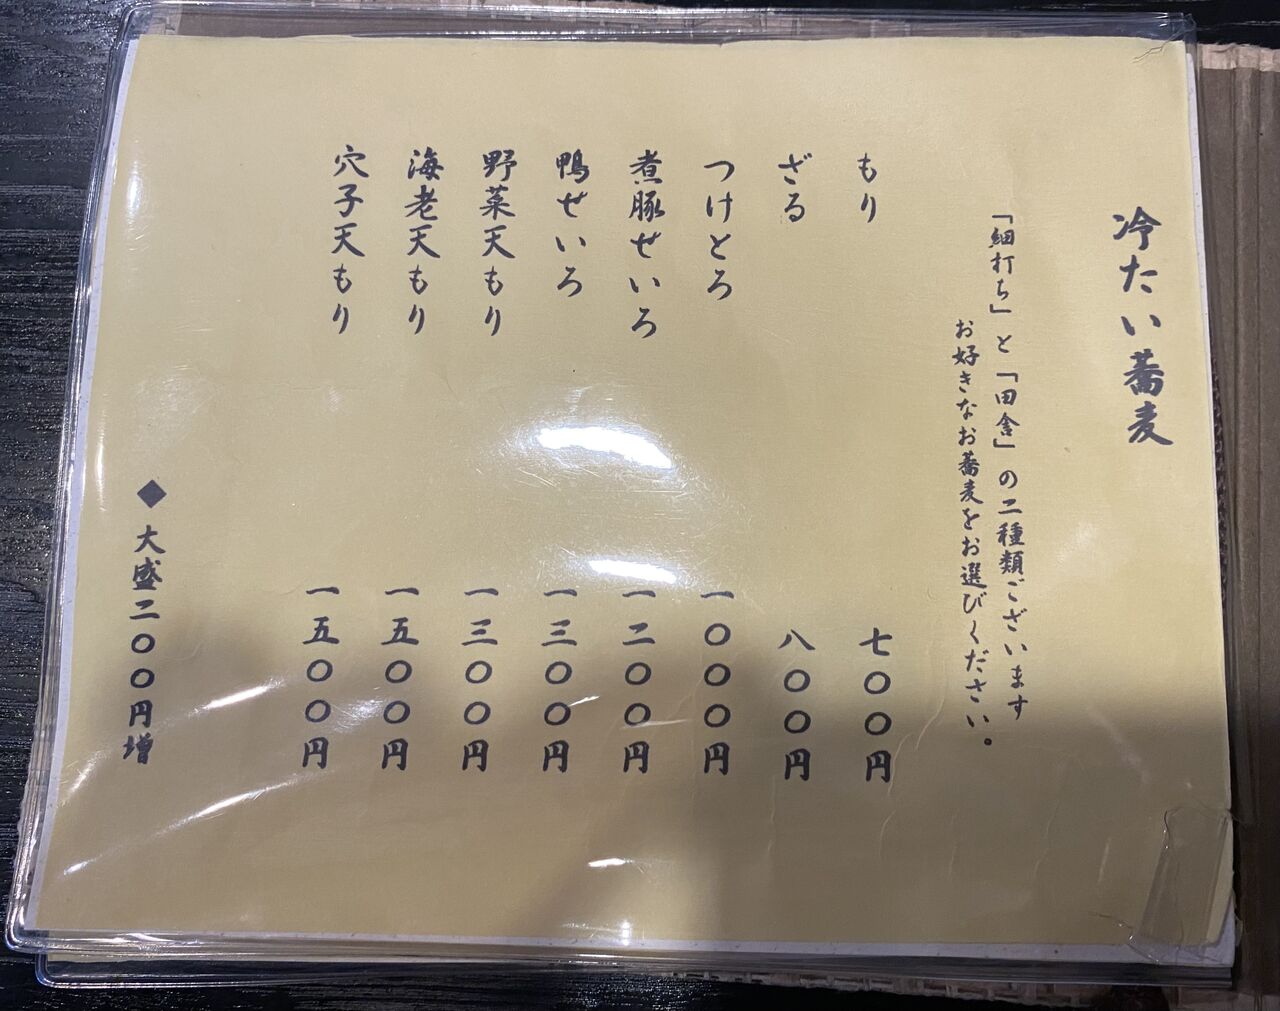 冷たい蕎麦
「細打ち」と「田舎」の二種類ございます
お好きなお蕎麦をお選びください。
もり 七〇〇円
ざる 八〇〇円
つけとろ 一〇〇〇円
煮豚せいろ 一二〇〇円
鴨せいろ 一三〇〇円
野菜天もり 一三〇〇円
海老天もり 一五〇〇円
穴子天もり 一五〇〇円
◆大盛二〇〇円増